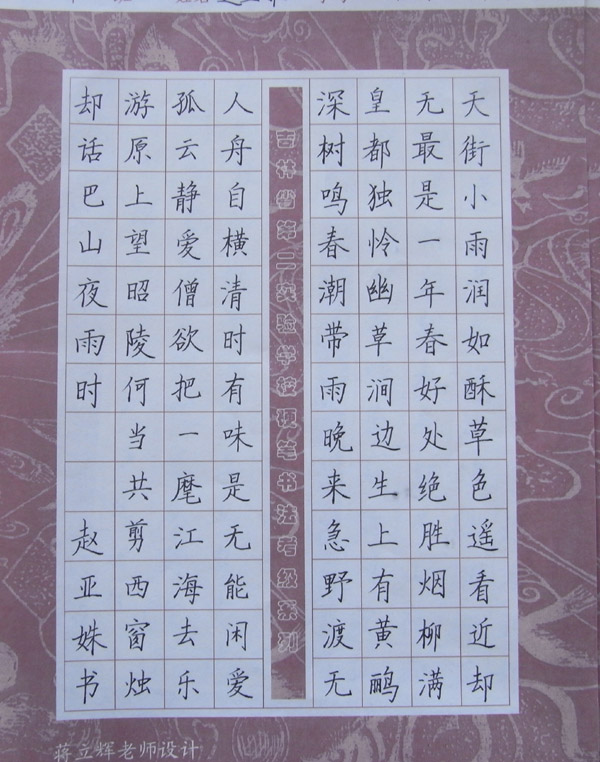 天街小雨润如酥草色遥看近却
无最是一年春好处绝胜烟柳满
皇都独怜幽草涧边生上有黄鹂
深树鸣春潮带雨晚来急野渡无
吉林省第二实验学校硬笔书法考级系列
人舟自横清时有味是无能闲爱
孤云静爱僧欲把一麾江海去乐
游原上望昭陵何当共剪西窗烛
却话巴山夜雨时 赵亚姝书
蒋立辉老师设计